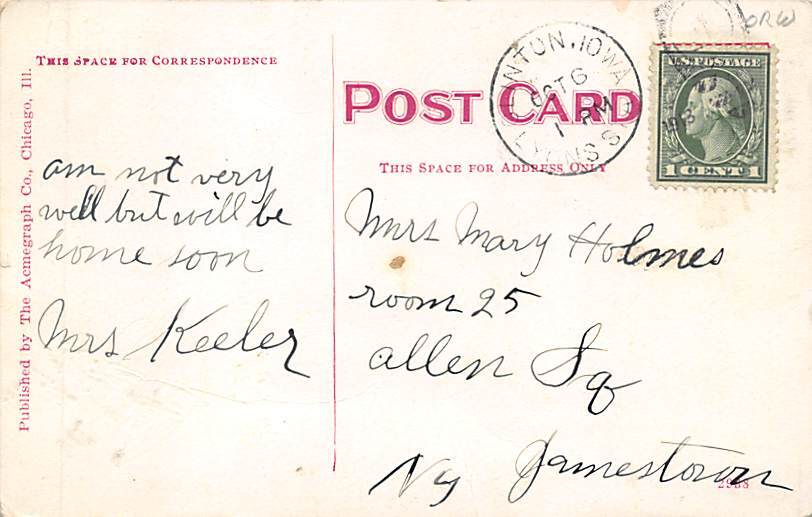 ORW
THIS SPACE FOR CORRESPONDENCE
POST CARD
CLINTON, IOWA
OCT 6
1 PM
LYONS STA
U.S. POSTAGE
1 CENT 1
THIS SPACE FOR ADDRESS ONLY
Published by The Acmegraph Co., Chicago, Ill.
am not very
well but will be
home soon
Mrs Keeler
Mrs Mary Holmes
room 25
allen Sq
Jamestown
Ny
2988